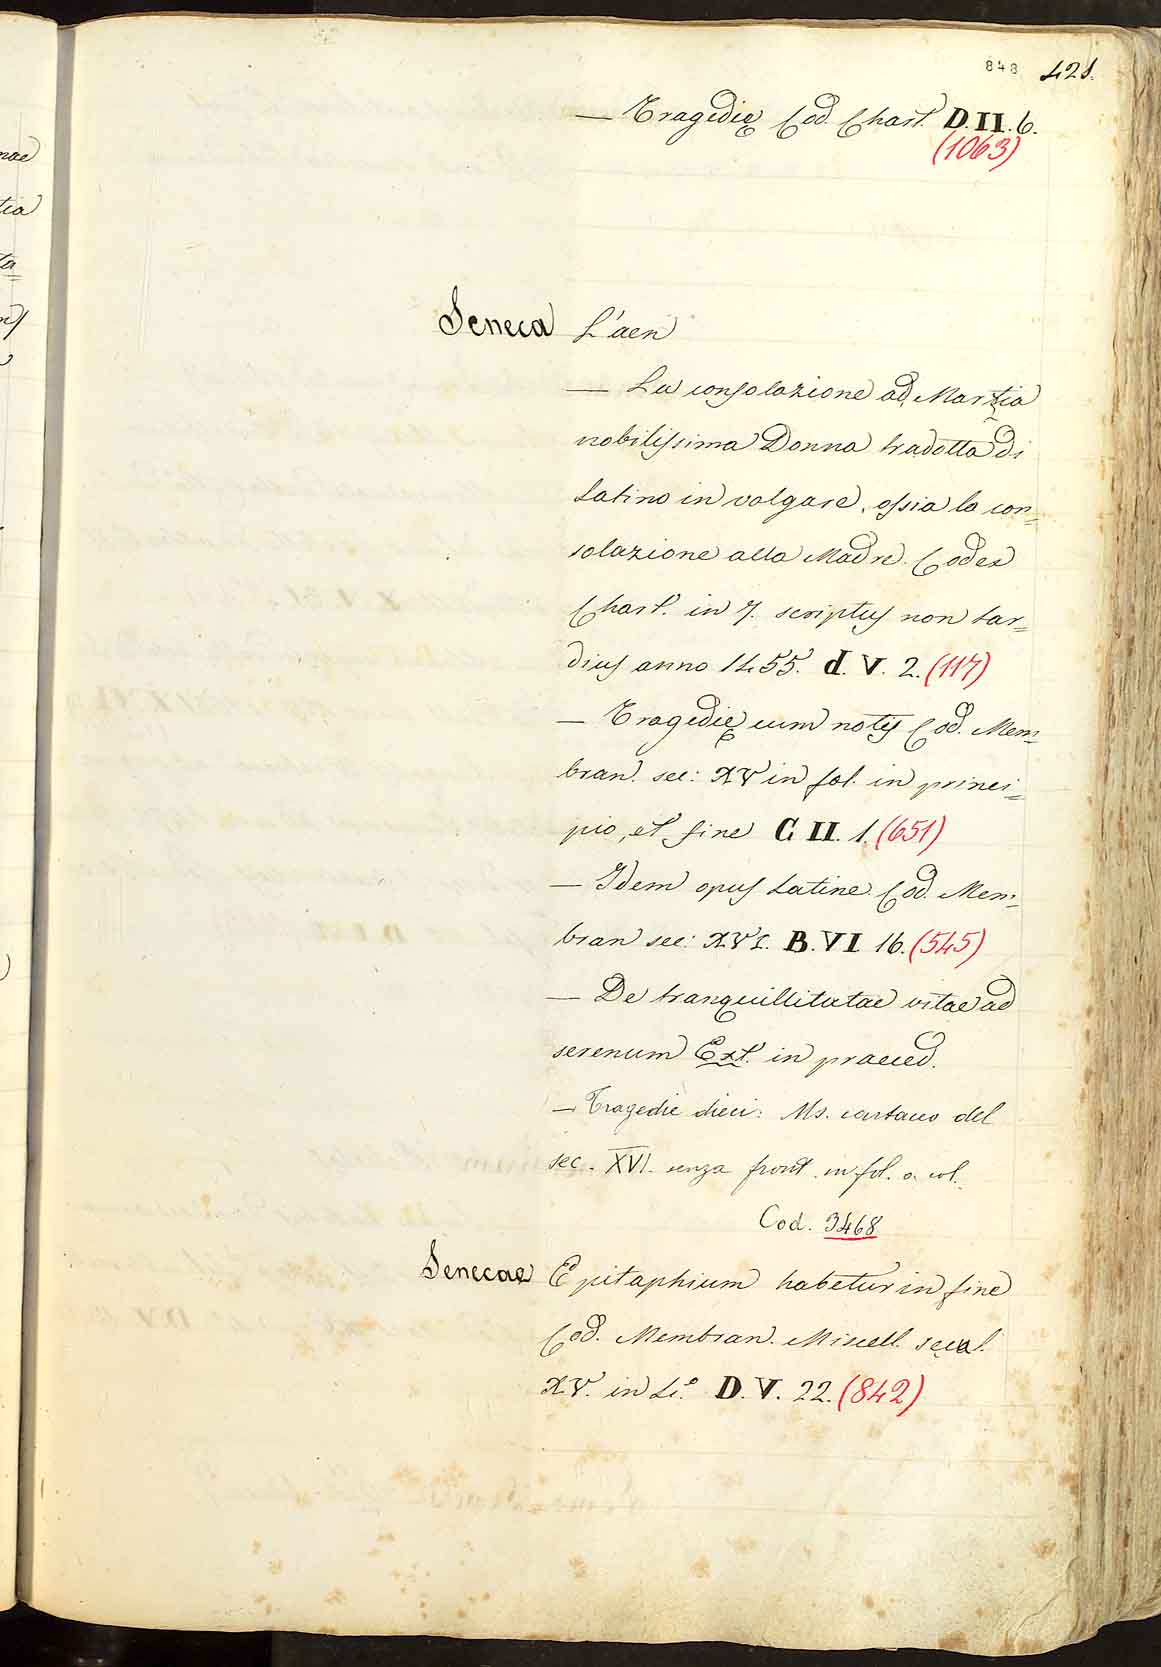 848 421.
— Tragedię Cod. Chart. D. II. 6.
(1063)
Seneca L'aen
— La consolazione ad Martia
nobilissima Donna tradotta di
Latino in volgare, ossia la con=
solazione alla Madre. Codex
Chart. in 7. scriptus non tar=
dius anno 1455. d. V. 2. (117)
— Tragedię cum notis Cod. Mem=
bran. sec: XV in fol. in princi=
pio, et fine C II. 1. (651)
— Idem opus Latine. Cod. Mem=
bran sec: XVI. B. VI 16. (545)
— De tranquillitatae vitae ad
serenum Ext. in praeced.
— Tragedie dieci: Ms. cartaceo del
sec. XVI. senza front. in fol. a col.
Cod. 3468
Senecae Epitaphium habetur in fine
Cod. Membran. Miscell. secul.
XV. in 4.º D. V. 22. (842)
nae
tia
ta